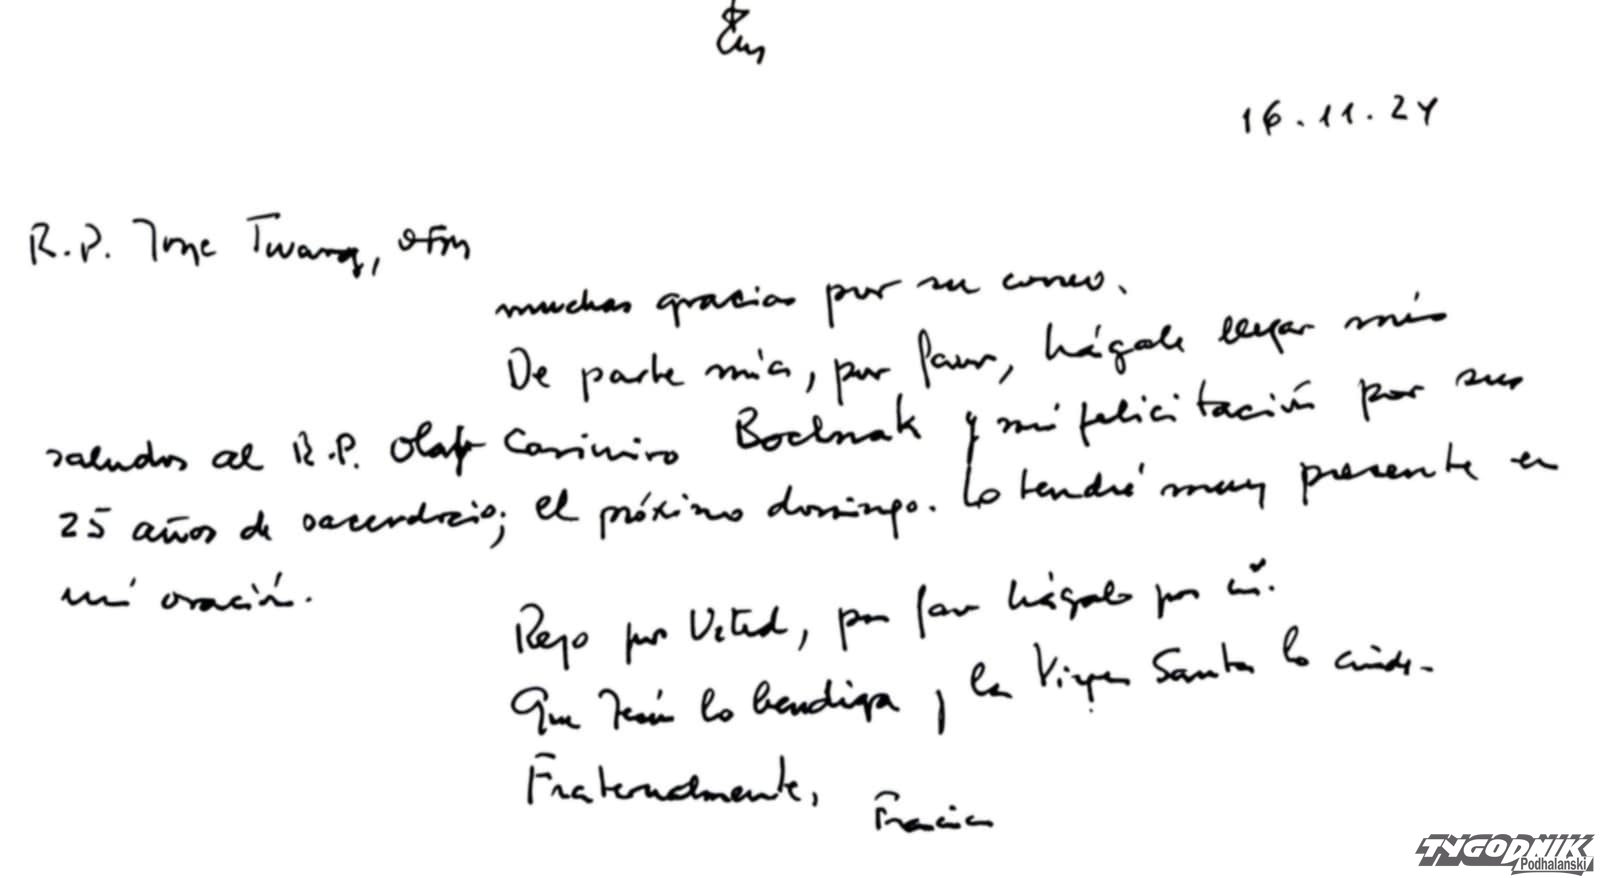 16.11.24
R.P. Jorge Twarog, OFM
muchas gracias por su correo.
De parte mía, por favor, hágale llegar mis
saludos al R.P. Olaf Casimiro Bochnak y mi felicitación por sus
25 años de sacerdocio; el próximo domingo. Lo tendré muy presente en
mi oración.
Rezo por Usted, por favor hágalo por mí.
Que Jesús lo bendiga y la Virgen Santa lo cuide.
Fraternalmente,
TYGODNIK
Podhalański